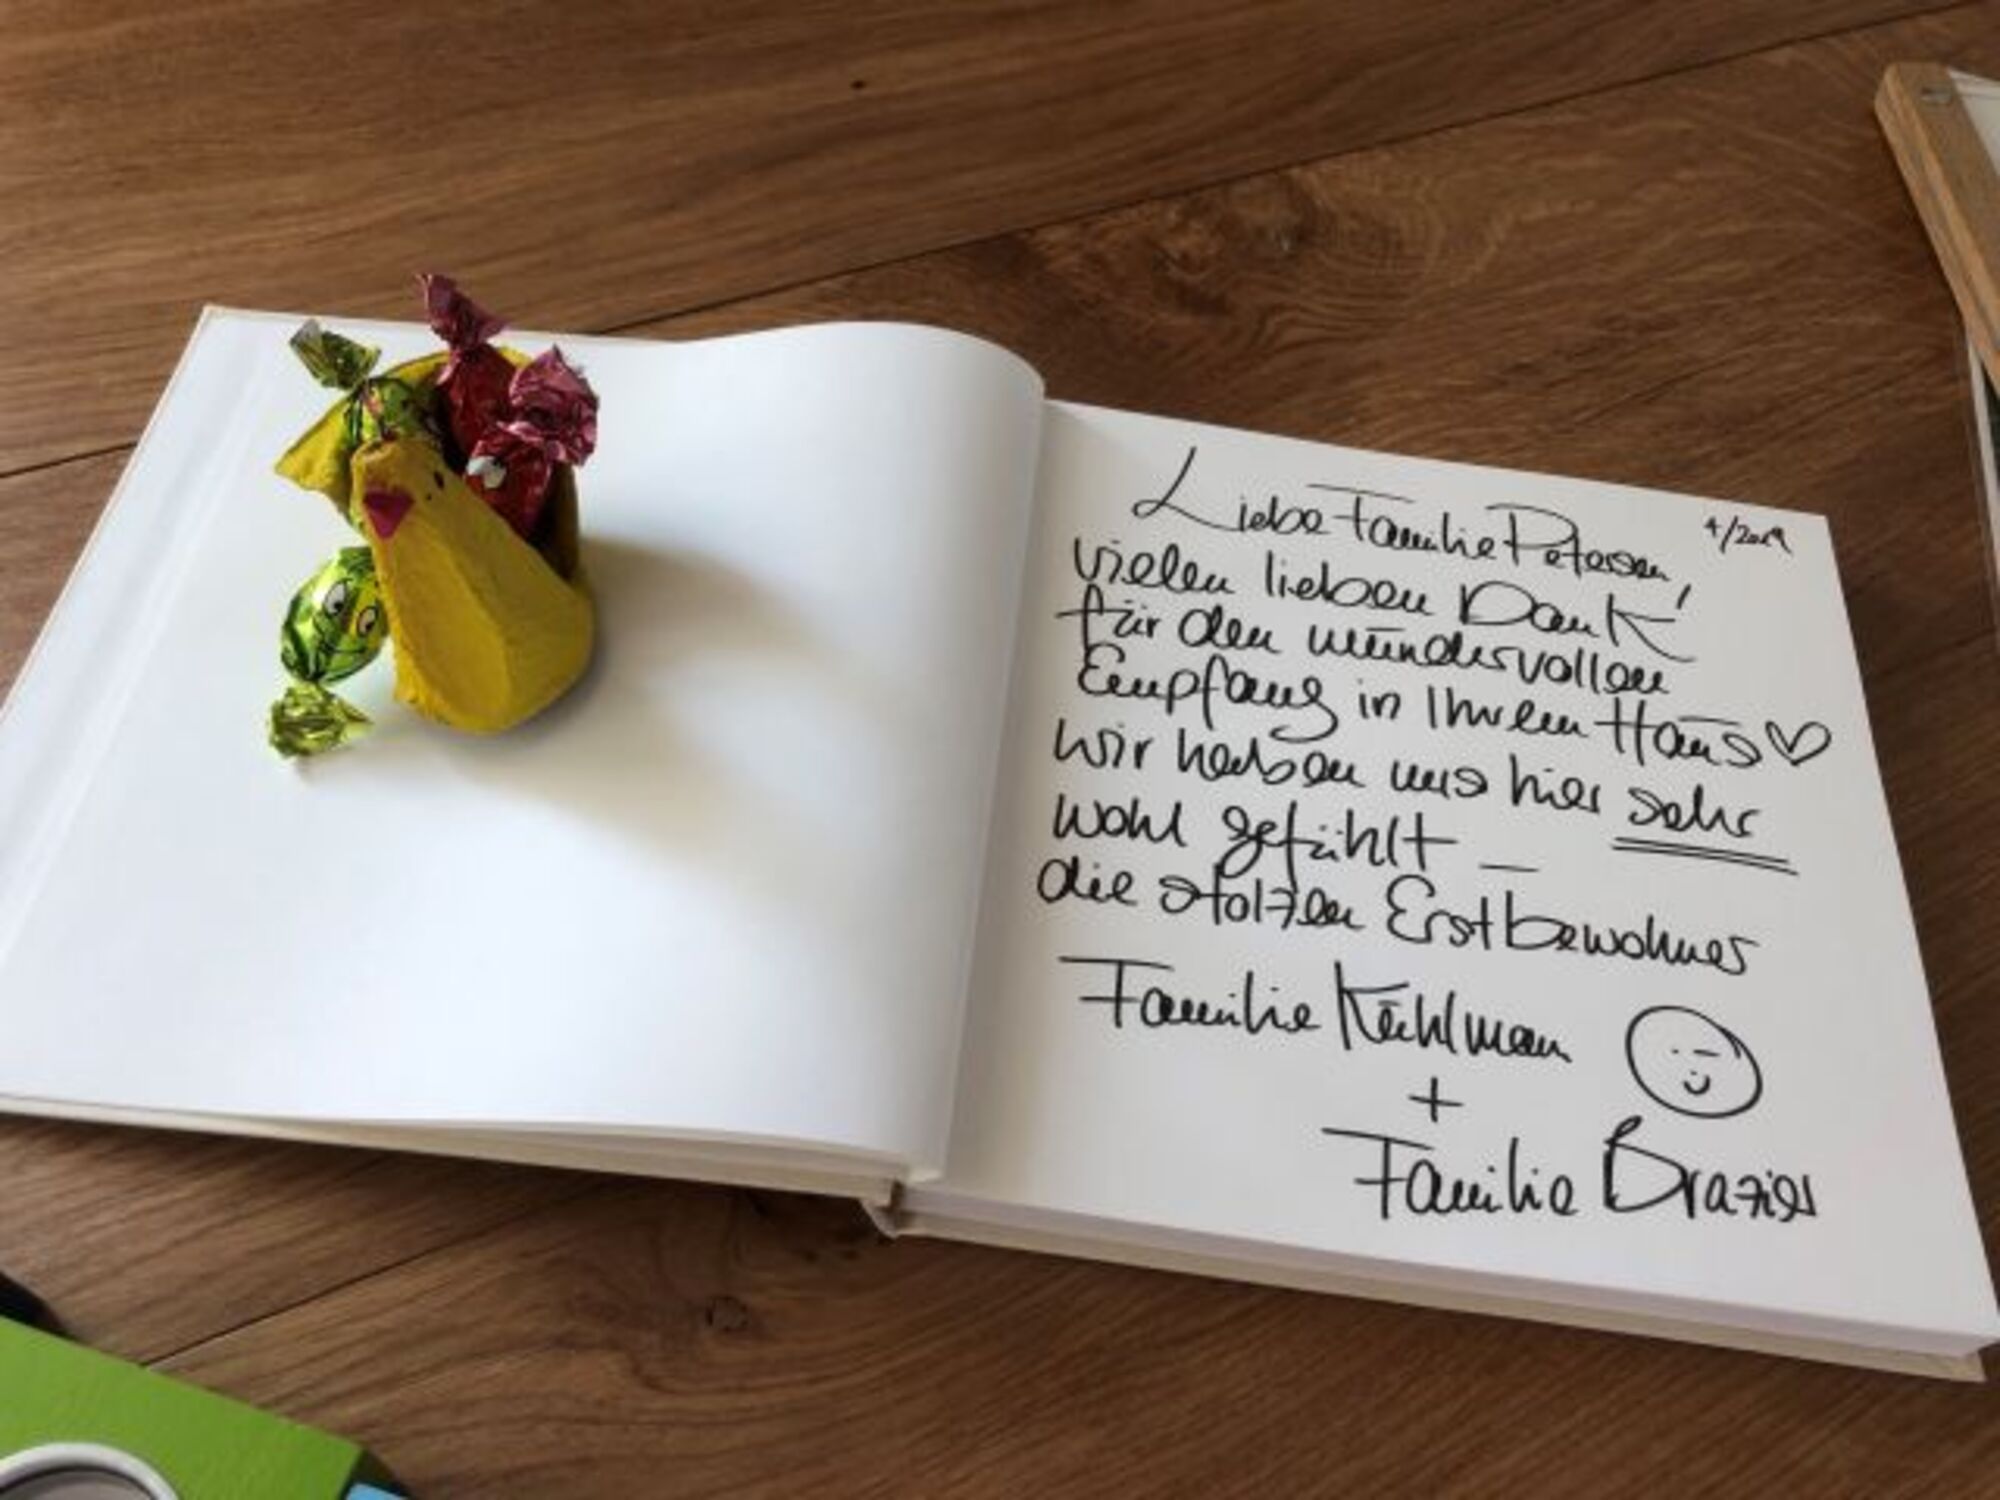 Liebe Familie Petersen, 4/2019
vielen lieben Dank
für den wundervollen
Empfang in Ihrem Haus ♡
wir haben uns hier sehr
wohl gefühlt _
die stolzen Erstbewohner
Familie Kühlmann
+
Familie Brazier